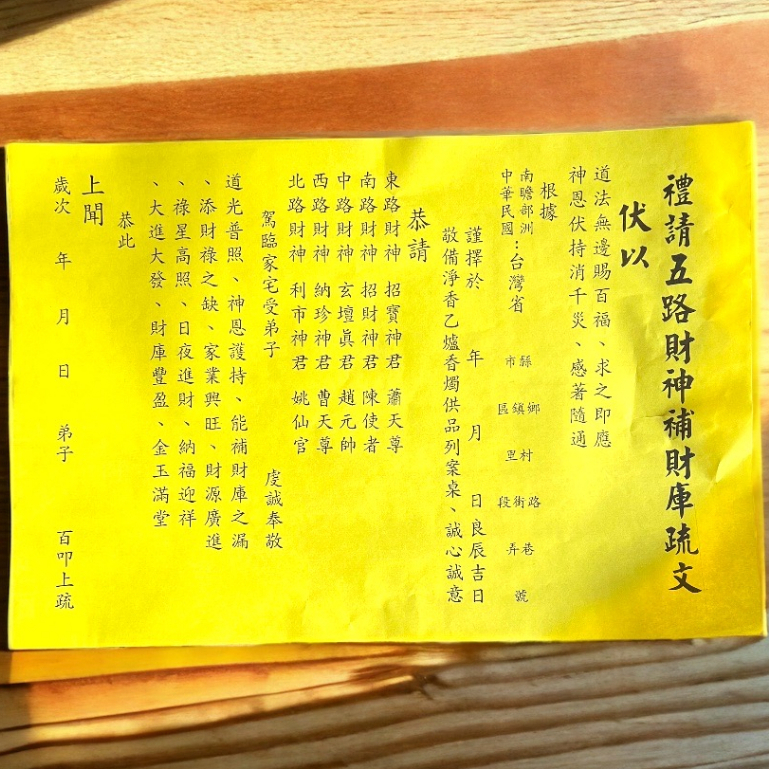 禮請五路財神補財庫疏文
伏以
道法無邊賜百福、求之即應
神恩伏持消千災、感著隨通
根據
南瞻部洲
中華民國：台灣省 縣市 鄉鎮區 村里 路街段 巷弄 號
謹擇於 年 月 日良辰吉日
敬備淨香乙爐香燭供品列案桌、誠心誠意
恭請
東路財神 招寶神君 蕭天尊
南路財神 招財神君 陳使者
中路財神 玄壇眞君 趙元帥
西路財神 納珍神君 曹天尊
北路財神 利市神君 姚仙官
駕臨家宅受弟子 虔誠奉敬
道光普照、神恩護持、能補財庫之漏
、添財祿之缺、家業興旺、財源廣進
、祿星高照、日夜進財、納福迎祥
、大進大發、財庫豐盈、金玉滿堂
恭此
上聞
歲次 年 月 日 弟子 百叩上疏